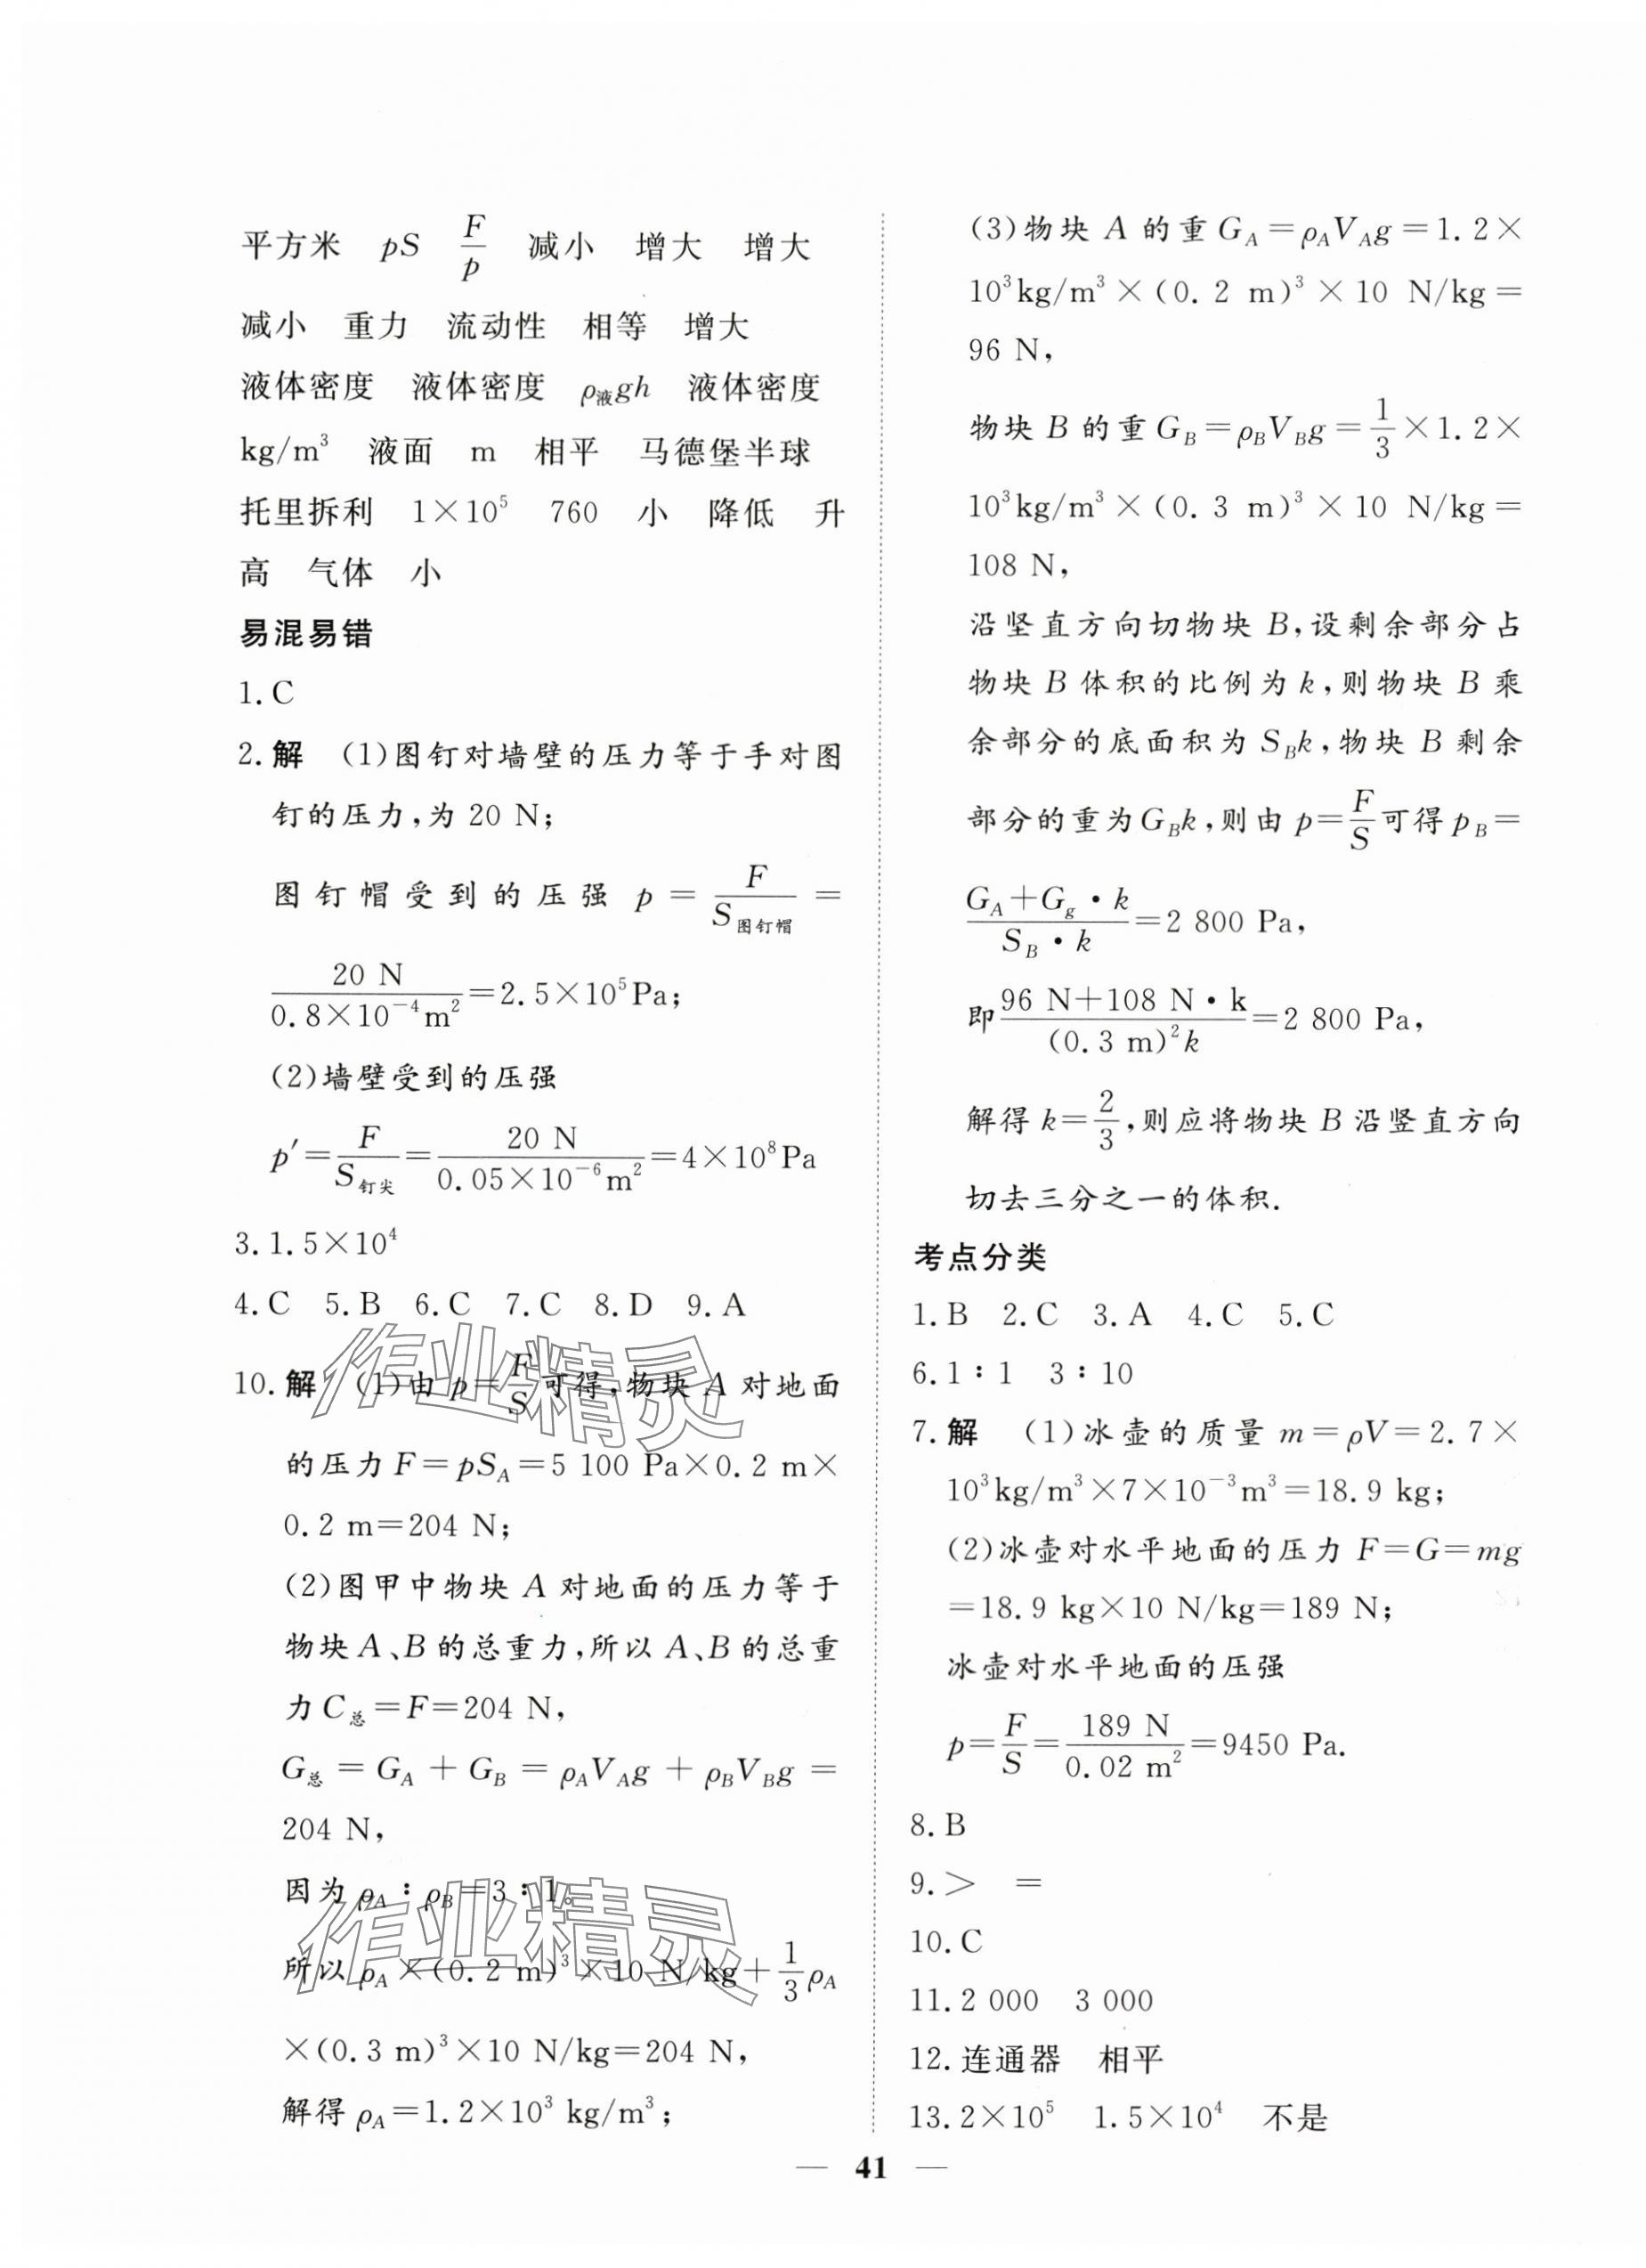 平方米 pS F/p 减小 增大 增大
减小 重力 流动性 相等 增大
液体密度 液体密度 ρ液gh 液体密度
kg/m³ 液面 m 相平 马德堡半球
托里拆利 1×10⁵ 760 小 降低 升
高 气体 小
易混易错
1. C
2. 解 (1)图钉对墙壁的压力等于手对图
钉的压力,为 20 N;
图钉帽受到的压强 p = F/S图钉帽 =
20 N/0.8×10⁻⁴m² = 2.5×10⁵Pa;
(2)墙壁受到的压强
p′ = F/S钉尖 = 20 N/0.05×10⁻⁶m² = 4×10⁸Pa
3. 1.5×10⁴
4. C 5. B 6. C 7. C 8. D 9. A
10. 解 (1)由 p = F/S 可得,物块 A 对地面
的压力 F = pS_A = 5 100 Pa×0.2 m×
0.2 m = 204 N;
(2)图甲中物块 A 对地面的压力等于
物块 A、B 的总重力,所以 A、B 的总重
力 C总 = F = 204 N,
G总 = G_A + G_B = ρ_AV_Ag + ρ_BV_Bg =
204 N,
因为 ρ_A∶ρ_B = 3∶1。
所以 ρ_A×(0.2 m)³×10 N/kg + 1/3 ρ_A
×(0.3 m)³×10 N/kg = 204 N,
解得 ρ_A = 1.2×10³ kg/m³;
(3)物块 A 的重 G_A = ρ_AV_Ag = 1.2×
10³kg/m³×(0.2 m)³×10 N/kg =
96 N,
物块 B 的重 G_B = ρ_BV_Bg = 1/3×1.2×
10³kg/m³×(0.3 m)³×10 N/kg =
108 N,
沿坚直方向切物块 B,设剩余部分占
物块 B 体积的比例为 k,则物块 B 乘
余部分的底面积为 S_Bk,物块 B 剩余
部分的重为 G_Bk,则由 p = F/S 可得 p_B =
G_A+G_g·k/S_B·k = 2 800 Pa,
即 96 N+108 N·k/(0.3 m)²k = 2 800 Pa,
解得 k = 2/3,则应将物块 B 沿竖直方向
切去三分之一的体积.
考点分类
1. B 2. C 3. A 4. C 5. C
6. 1∶1 3∶10
7. 解 (1)冰壶的质量 m = ρV = 2.7×
10³kg/m³×7×10⁻³m³ = 18.9 kg;
(2)冰壶对水平地面的压力 F = G = mg
= 18.9 kg×10 N/kg = 189 N;
冰壶对水平地面的压强
p = F/S = 189 N/0.02 m² = 9450 Pa.
8. B
9. > =
10. C
11. 2 000 3 000
12. 连通器 相平
13. 2×10⁵ 1.5×10⁴ 不是
— 41 —
作业精灵
作业精灵